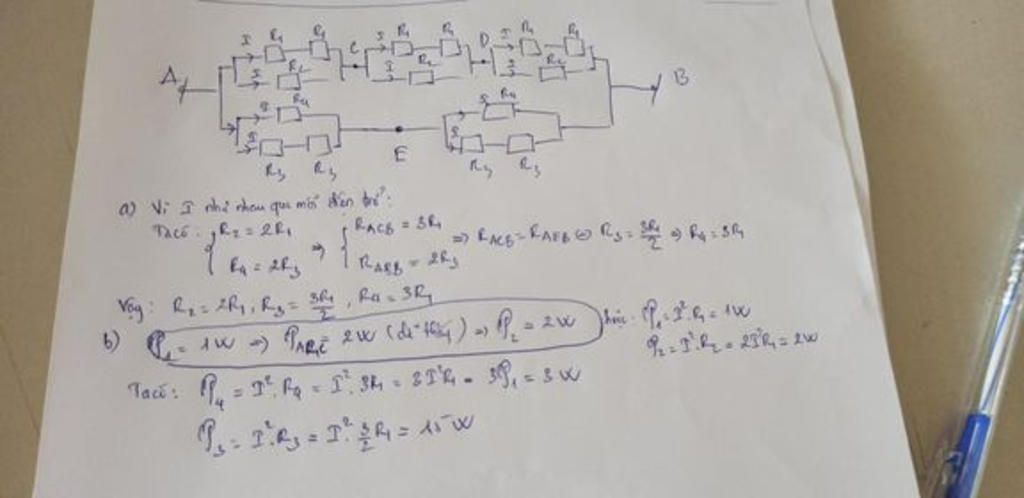 I R₁ R₁ C I R₁ R₁ D I R₁ R₁
A I R₂ I R₂ I R₂ B
I R₄ I R₄
I R₃ R₃ E I R₃ R₃
a) Vì I như nhau qua mỗi điện trở:
Ta có: { R₂ = 2R₁ ⇒ { R_ACB = 3R₁ ⇒ R_ACB = R_AEB ⇔ R₃ = 3R₁/2 ⇒ R₄ = 3R₁
R₄ = 2R₃ R_AEB = 2R₃
Vậy: R₂ = 2R₁, R₃ = 3R₁/2, R₄ = 3R₁
b) P₁ = 1W ⇒ 2W ⇒ P₂ = 2W P₁ = I².R₁ = 1W
P₂ = I².R₂ = 2I²R₁ = 2W
Ta có: P₄ = I².R₄ = I².3R₁ = 3I²R₁ = 3P₁ = 3W
P₃ = I².R₃ = I².3/2R₁ = 1,5W